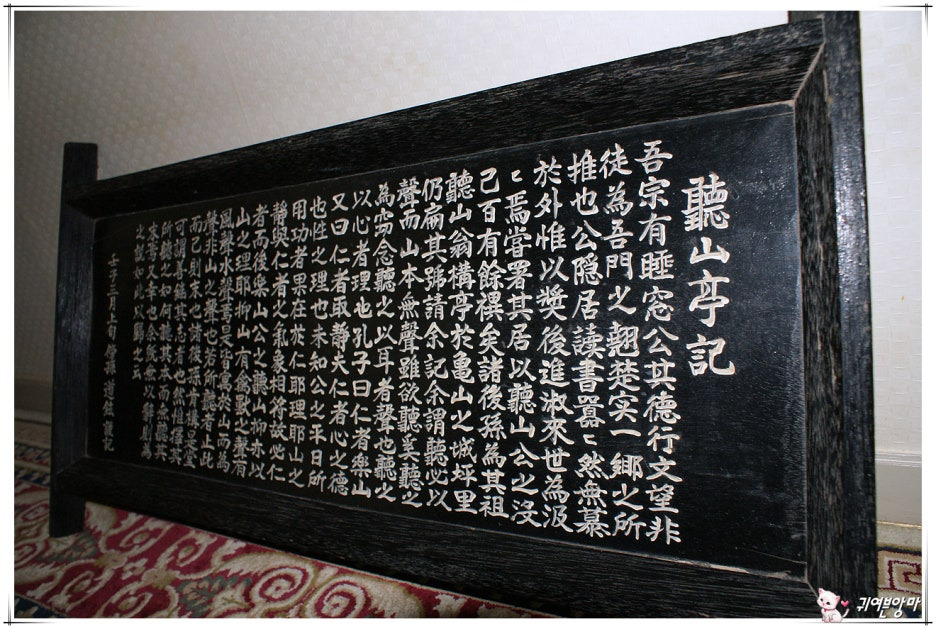 聽山亭記
吾宗有睡窓公其德行文望非
徒為吾門之翹楚实一鄉之所
推也公隱居讀書囂〻然無慕
於外惟以奬後進淑來世為汲
〻焉嘗署其居以聽山公之沒
已百有餘禩矣諸後孫為其祖
聽山翁構亭於亀山之城坪里
仍扁其號請余記余謂聽必以
聲而山本無聲雖欲聽奚聽之
為窃念聽之以耳者聲也聽之
以心者理也孔子曰仁者樂山
又曰仁者取静夫仁者心之德
也性之理也未知公之平日所
用功者果在於仁耶理耶山之
静與仁者之氣象相符故必仁
者而後樂山公之聽山抑亦以
山之理耶抑山有禽獸之聲有
風聲水聲焉是皆寓於山而為
聲非山之聲也若所聽者止此
而已則末也諸後孫肯構是堂
可謂善継其志者也然惟擇其
所聽之如何聽其本而無聽其
末寄又幸也余旣無以辭則為
此說如此以歸之云
壬子三月上旬 傍孫 道鉉 謹記
귀여븐앙마